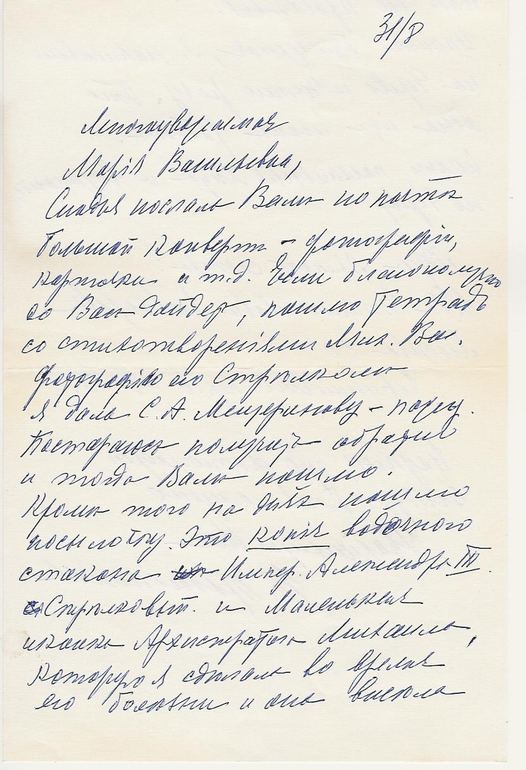 31/8
Многоуважаемая
Марія Васильевна,
послалъ Вамъ по почтѣ
большой конвертъ – фотографіи,
карточки и т.д. Если благополучно
со Ван дойдет, пошлю тетрадь
со стихотвореніями Мих. Вас.
фотографію его Стрѣлкомъ
я дала С. А. Мещеринову –
Постараюсь получить обратно
и тогда Вамъ пошлю.
Кромѣ того на дняхъ пошлю
посылочку. Это копія водочного
стакана Импер. Александра III.
и Маленькая
иконка Архистратига Михаила,
которую я сдѣлала во время
его болѣзни и она висѣла